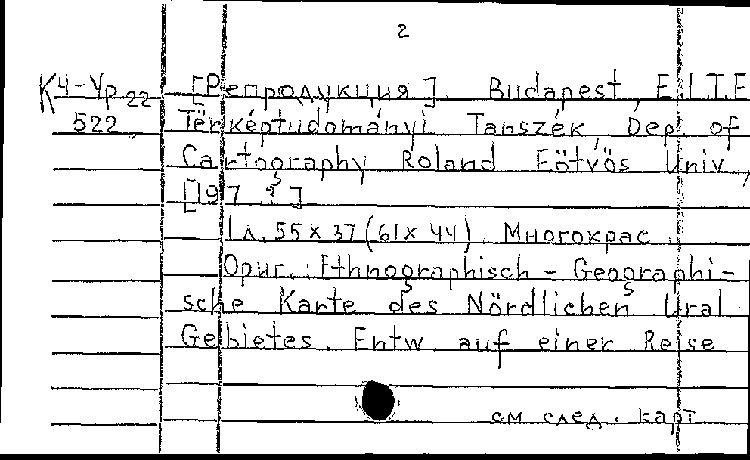 2
К4-Ур 22 [Репродукция]. Budapest, E.L.T.E
522 Térképtudományi Tanszék, Dep. of
Cartography Roland Eötvös Univ.,
[197 ? ]
1 л. 55 x 37 (61 x 44). Многокрас.
Ориг.: Ethnographisch - Geographi-
sche Karte des Nördlichen Ural
Gebietes. Entw. auf einer Reise
см след. карт